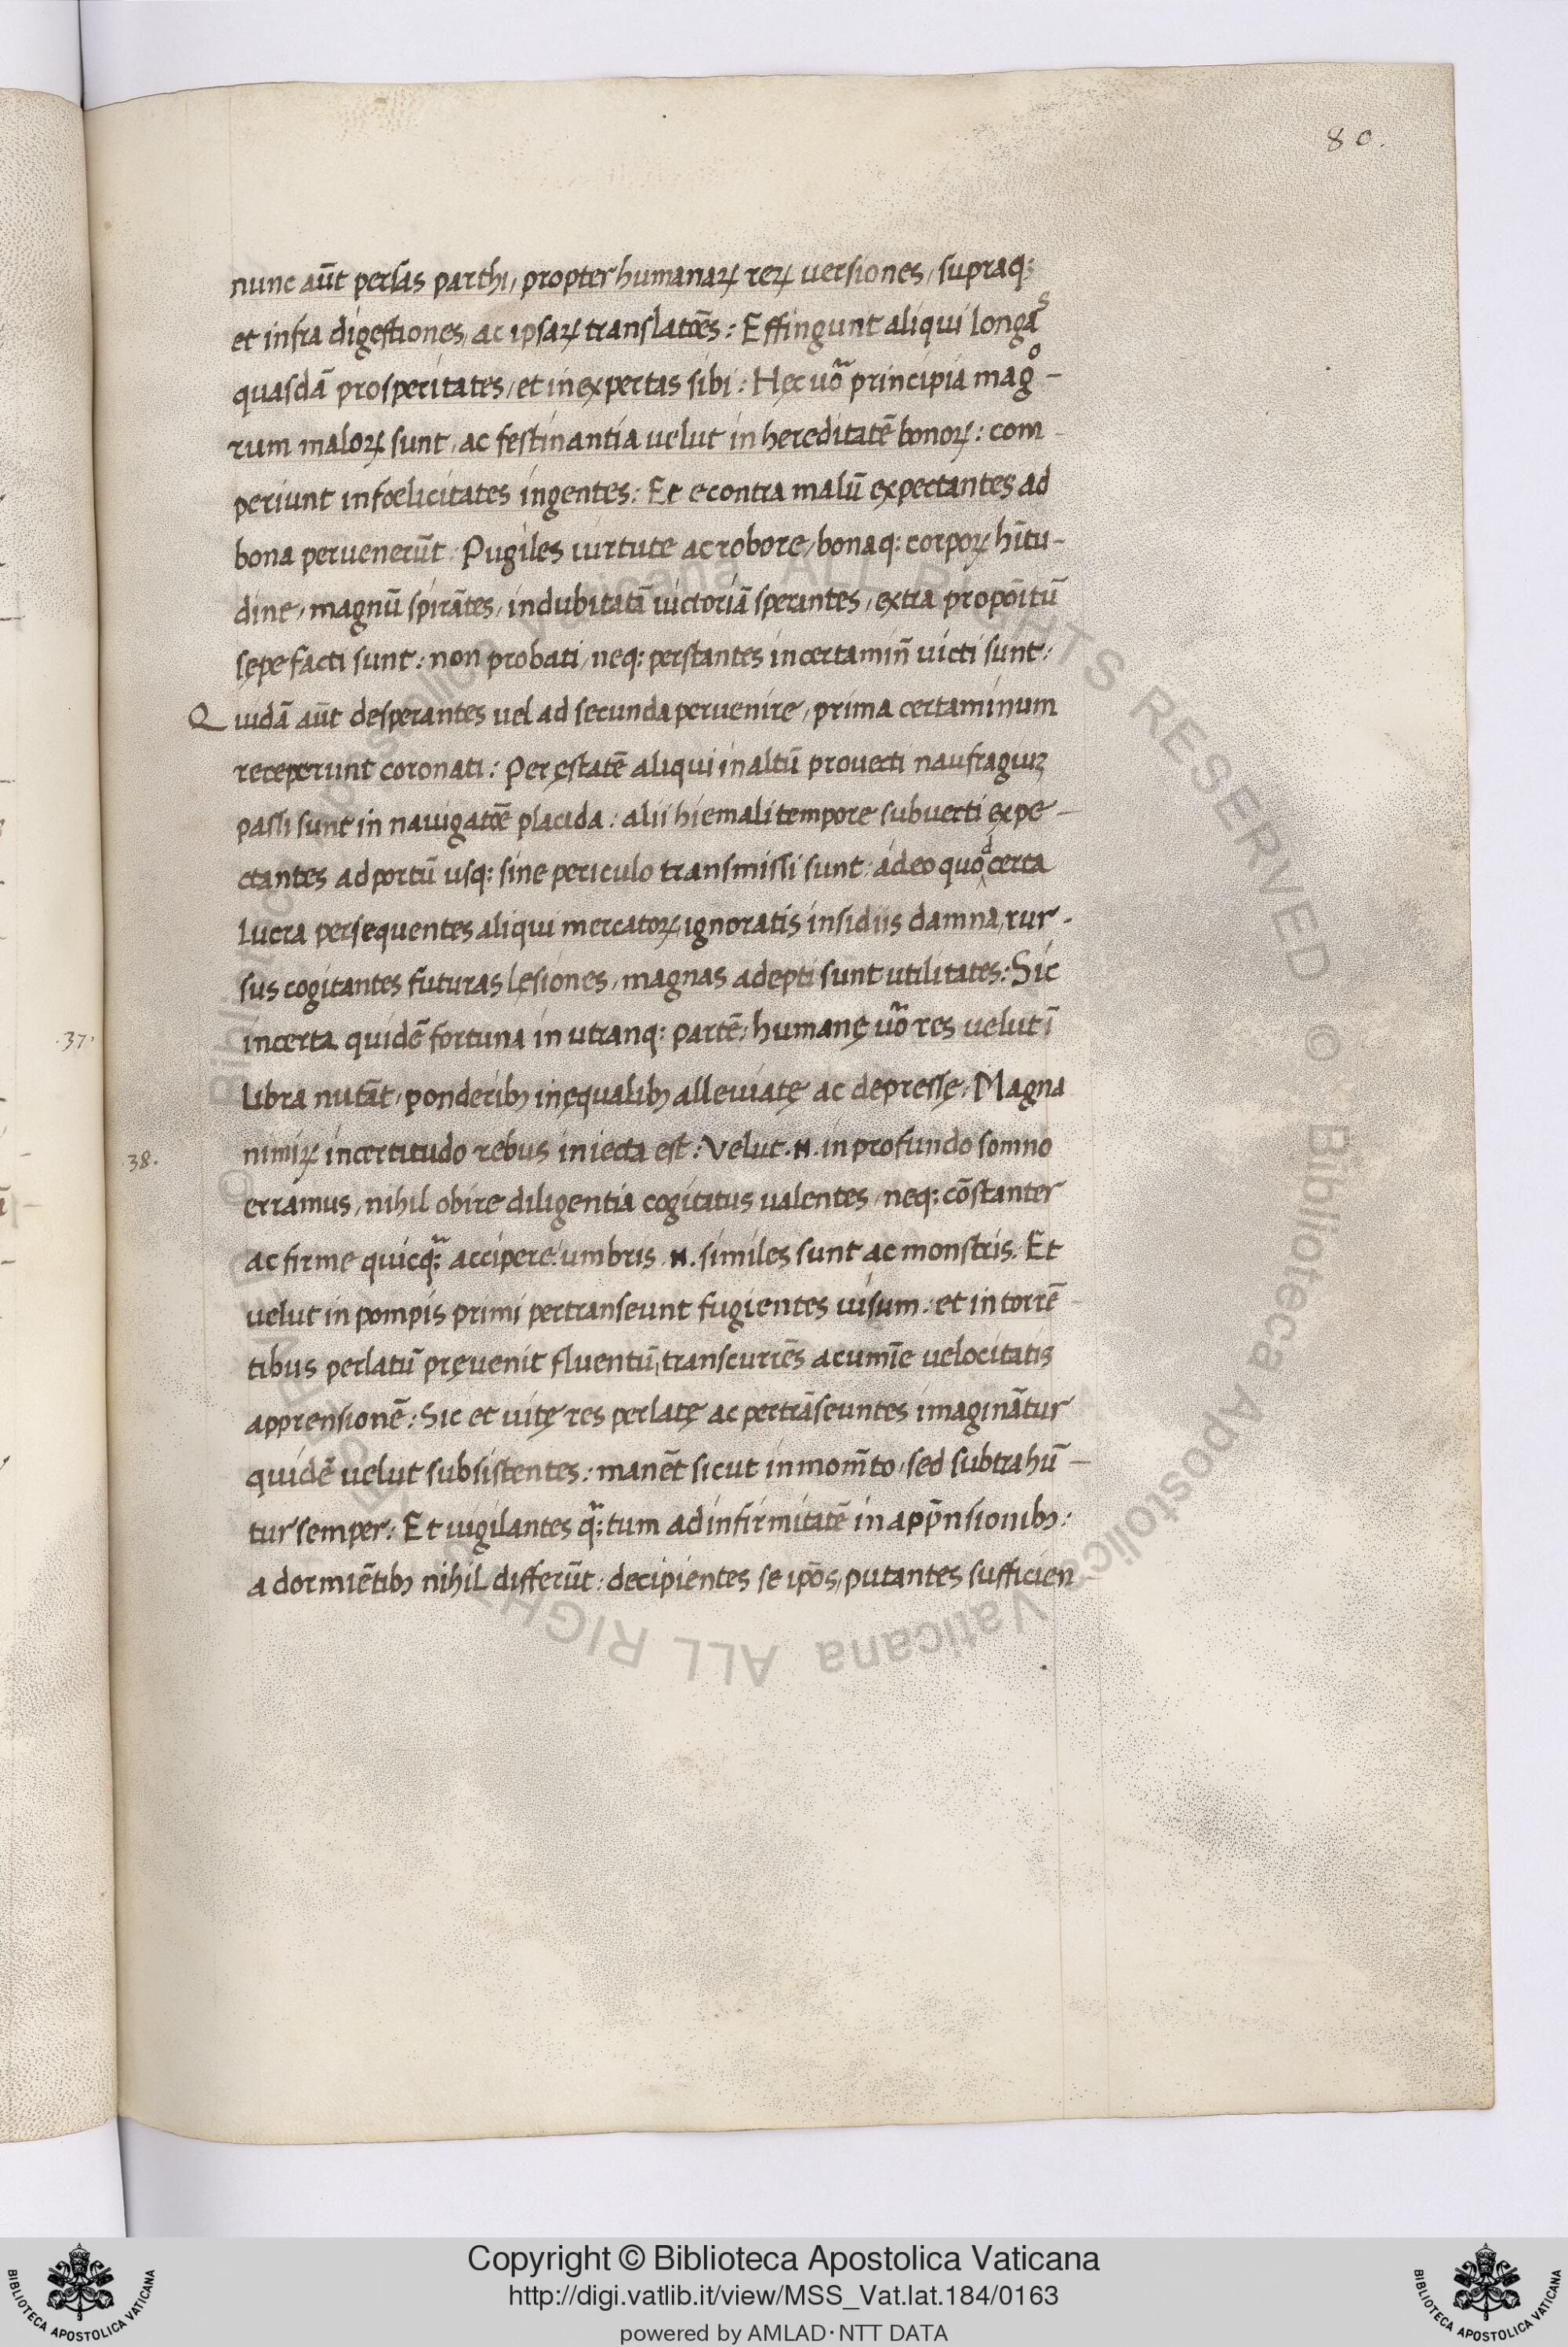 80.
nunc aūt persas parthi, propter humanaꝝ reꝝ uersiones, supraq;
et infra digestiones, ac ipsaꝝ translatōēs: Effingunt aliqui longas
quasdā prosperitates, et inexpertas sibi: Hęc uō principia mago-
rum maloꝝ sunt, ac festinantia uelut in hereditatē bonoꝝ: com
periunt infœlicitates ingentes: Et econtra malū expectantes ad
bona peruenerūt: Pugiles uirtute ac robore, bonaq; corpoꝝ hītu-
dine, magnū spirātes, indubitatā uictoriā sperantes, extra propōitū
sępe facti sunt: non probati, neq; perstantes in certamiñ uicti sunt:
Quidā aūt desperantes uel ad secunda peruenire, prima certaminum
receperunt coronati: Per ęstatē aliqui in altū prouecti naufragiuꝫ
passi sunt in nauigatōē placida: alii hiemali tempore subuerti expe-
ctantes ad portū usq; sine periculo transmissi sunt: adeo quod certa
lucra persequentes aliqui mercatoꝝ ignoratis insidiis damna, rur-
sus cogitantes futuras lęsiones, magnas adepti sunt utilitates: Sic
.37.
incerta quidē fortuna in utranq; partē: humanę uō res uelut ī
libra nutāt, ponderibꝫ inęqualibꝫ alleuiatę ac depressę, Magna
.38.
nimiꝝ incertitudo rebus iniecta est: Velut .N. in profundo somno
erramus, nihil obire diligentia cogitatus ualentes, neq; cōstanter
ac firme quicq; accipere: umbris .N. similes sunt ac monstris. Et
uelut in pompis primi pertranseunt fugientes uisum: et in torrē
tibus perlatū pręuenit fluentū, transcurrēs acumīe uelocitatis
apprensionē: Sic et uitę res perlatę ac pertrāseuntes imaginātur
quidē uelut subsistentes: manēt sicut in mom̄to, sed subtrahū-
tur semper: Et uigilantes q;tum ad infirmitatē in app̄nsionibꝫ:
a dormiētibꝫ nihil differūt: decipientes se ip̄os, putantes sufficien
© Biblioteca Apostolica Vaticana ALL RIGHTS RESERVED
Copyright © Biblioteca Apostolica Vaticana
http://digi.vatlib.it/view/MSS_Vat.lat.184/0163
powered by AMLAD·NTT DATA
BIBLIOTECA APOSTOLICA VATICANA
BIBLIOTECA APOSTOLICA VATICANA